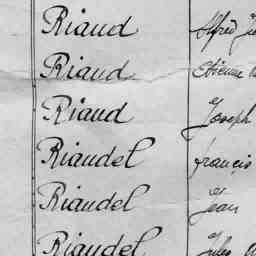 Riaud Alfred
Riaud Etienne
Riaud Joseph
Riaudel francis
Riaudel Jean
Riaudel Jules